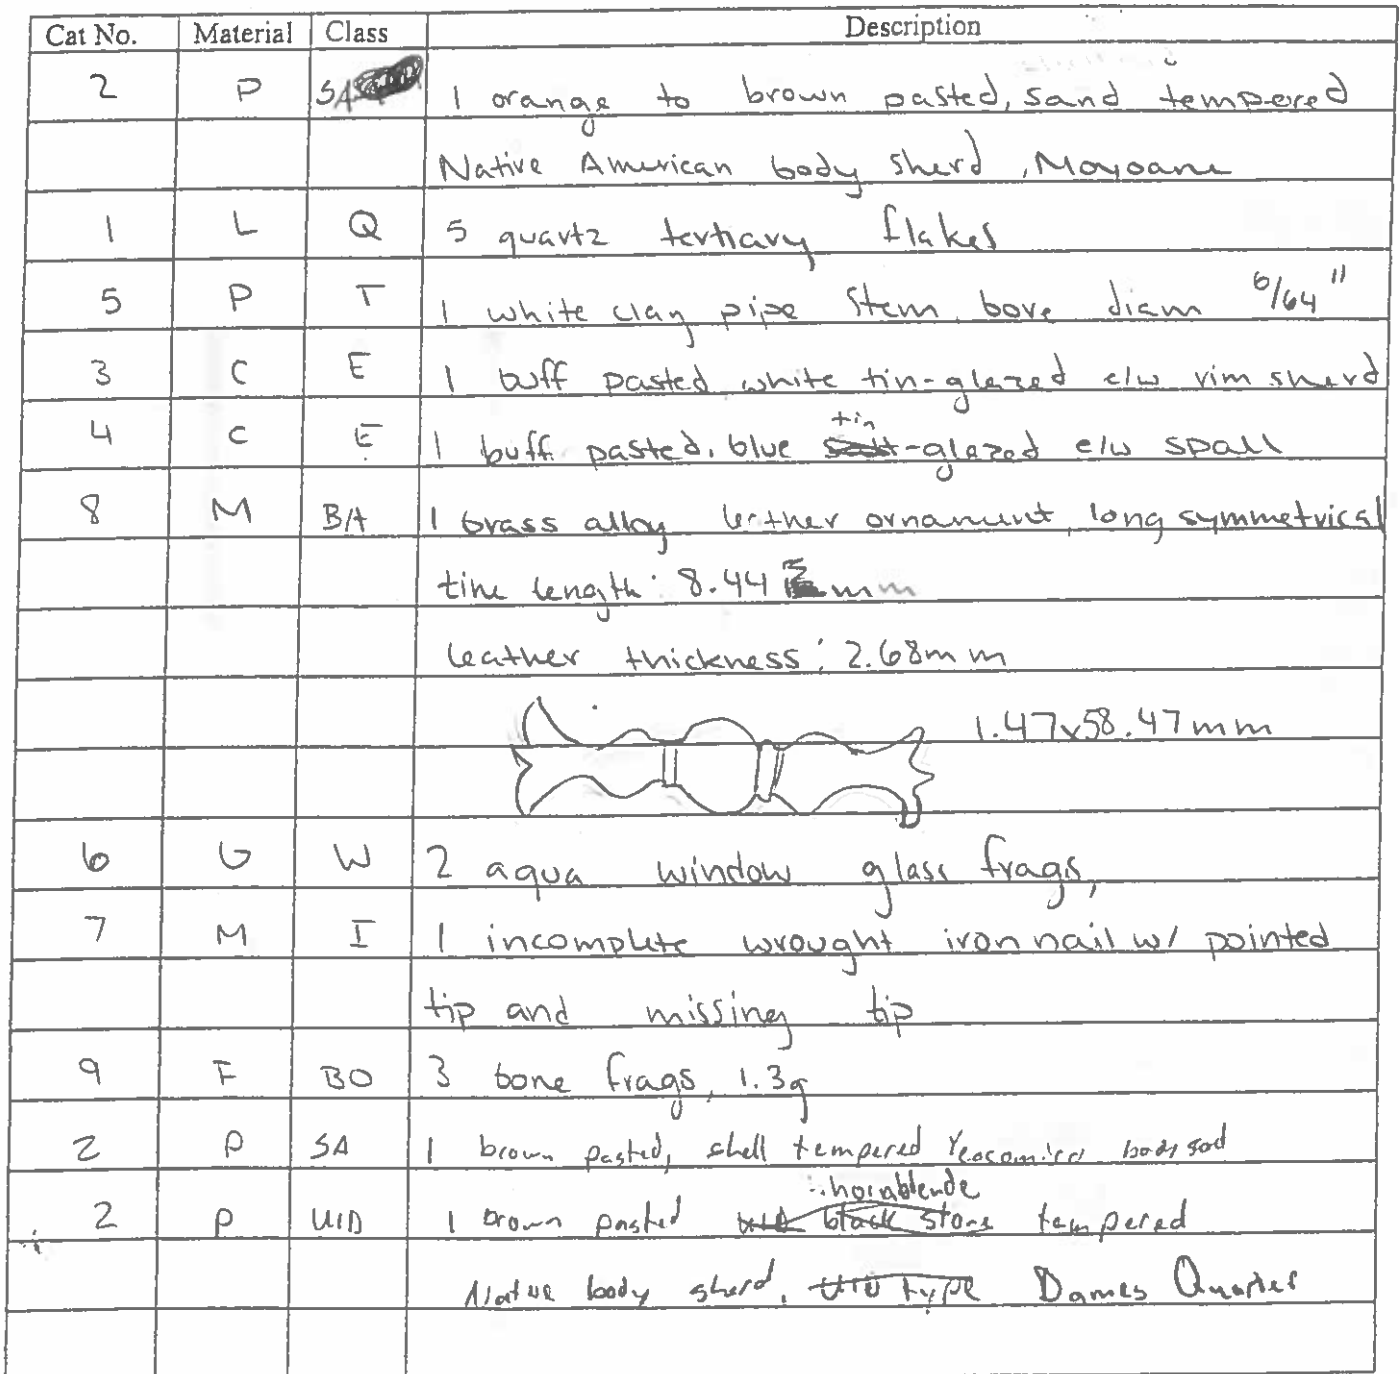 Cat No. Material Class Description
2 P SA 1 orange to brown pasted, sand tempered
Native American body sherd, Moyoane
1 L Q 5 quartz tertiary flakes
5 P T 1 white clay pipe stem, bore diam 6/64"
3 C E 1 buff pasted white tin-glazed e/w rim sherd
4 C E 1 buff pasted, blue tin-glazed e/w spall
8 M B/A 1 brass alloy leather ornament, long symmetrical
tine length: 8.44 mm
leather thickness: 2.68mm
1.47x58.47mm
6 G W 2 aqua window glass frags,
7 M I 1 incomplete wrought iron nail w/ pointed
tip and missing tip
9 F BO 3 bone frags, 1.3g
2 P SA 1 brown pasted, shell tempered Yeocomico body
2 P UID 1 brown pasted UID black stone hornblende tempered
Native body sherd, UID type Dames Quarter